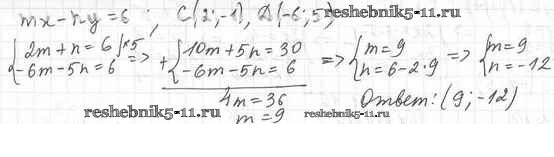 mx - ny = 6 ; C(2; -1), D(-6; 5)
reshebnik5-11.ru
{2m + n = 6 |×5 => +{10m + 5n = 30 => {m = 9 => {m = 9
{-6m - 5n = 6 {-6m - 5n = 6 {n = 6 - 2·9 {n = -12
4m = 36
m = 9
Ответ: (9; -12)
reshebnik5-11.ru
reshebnik5-11.ru